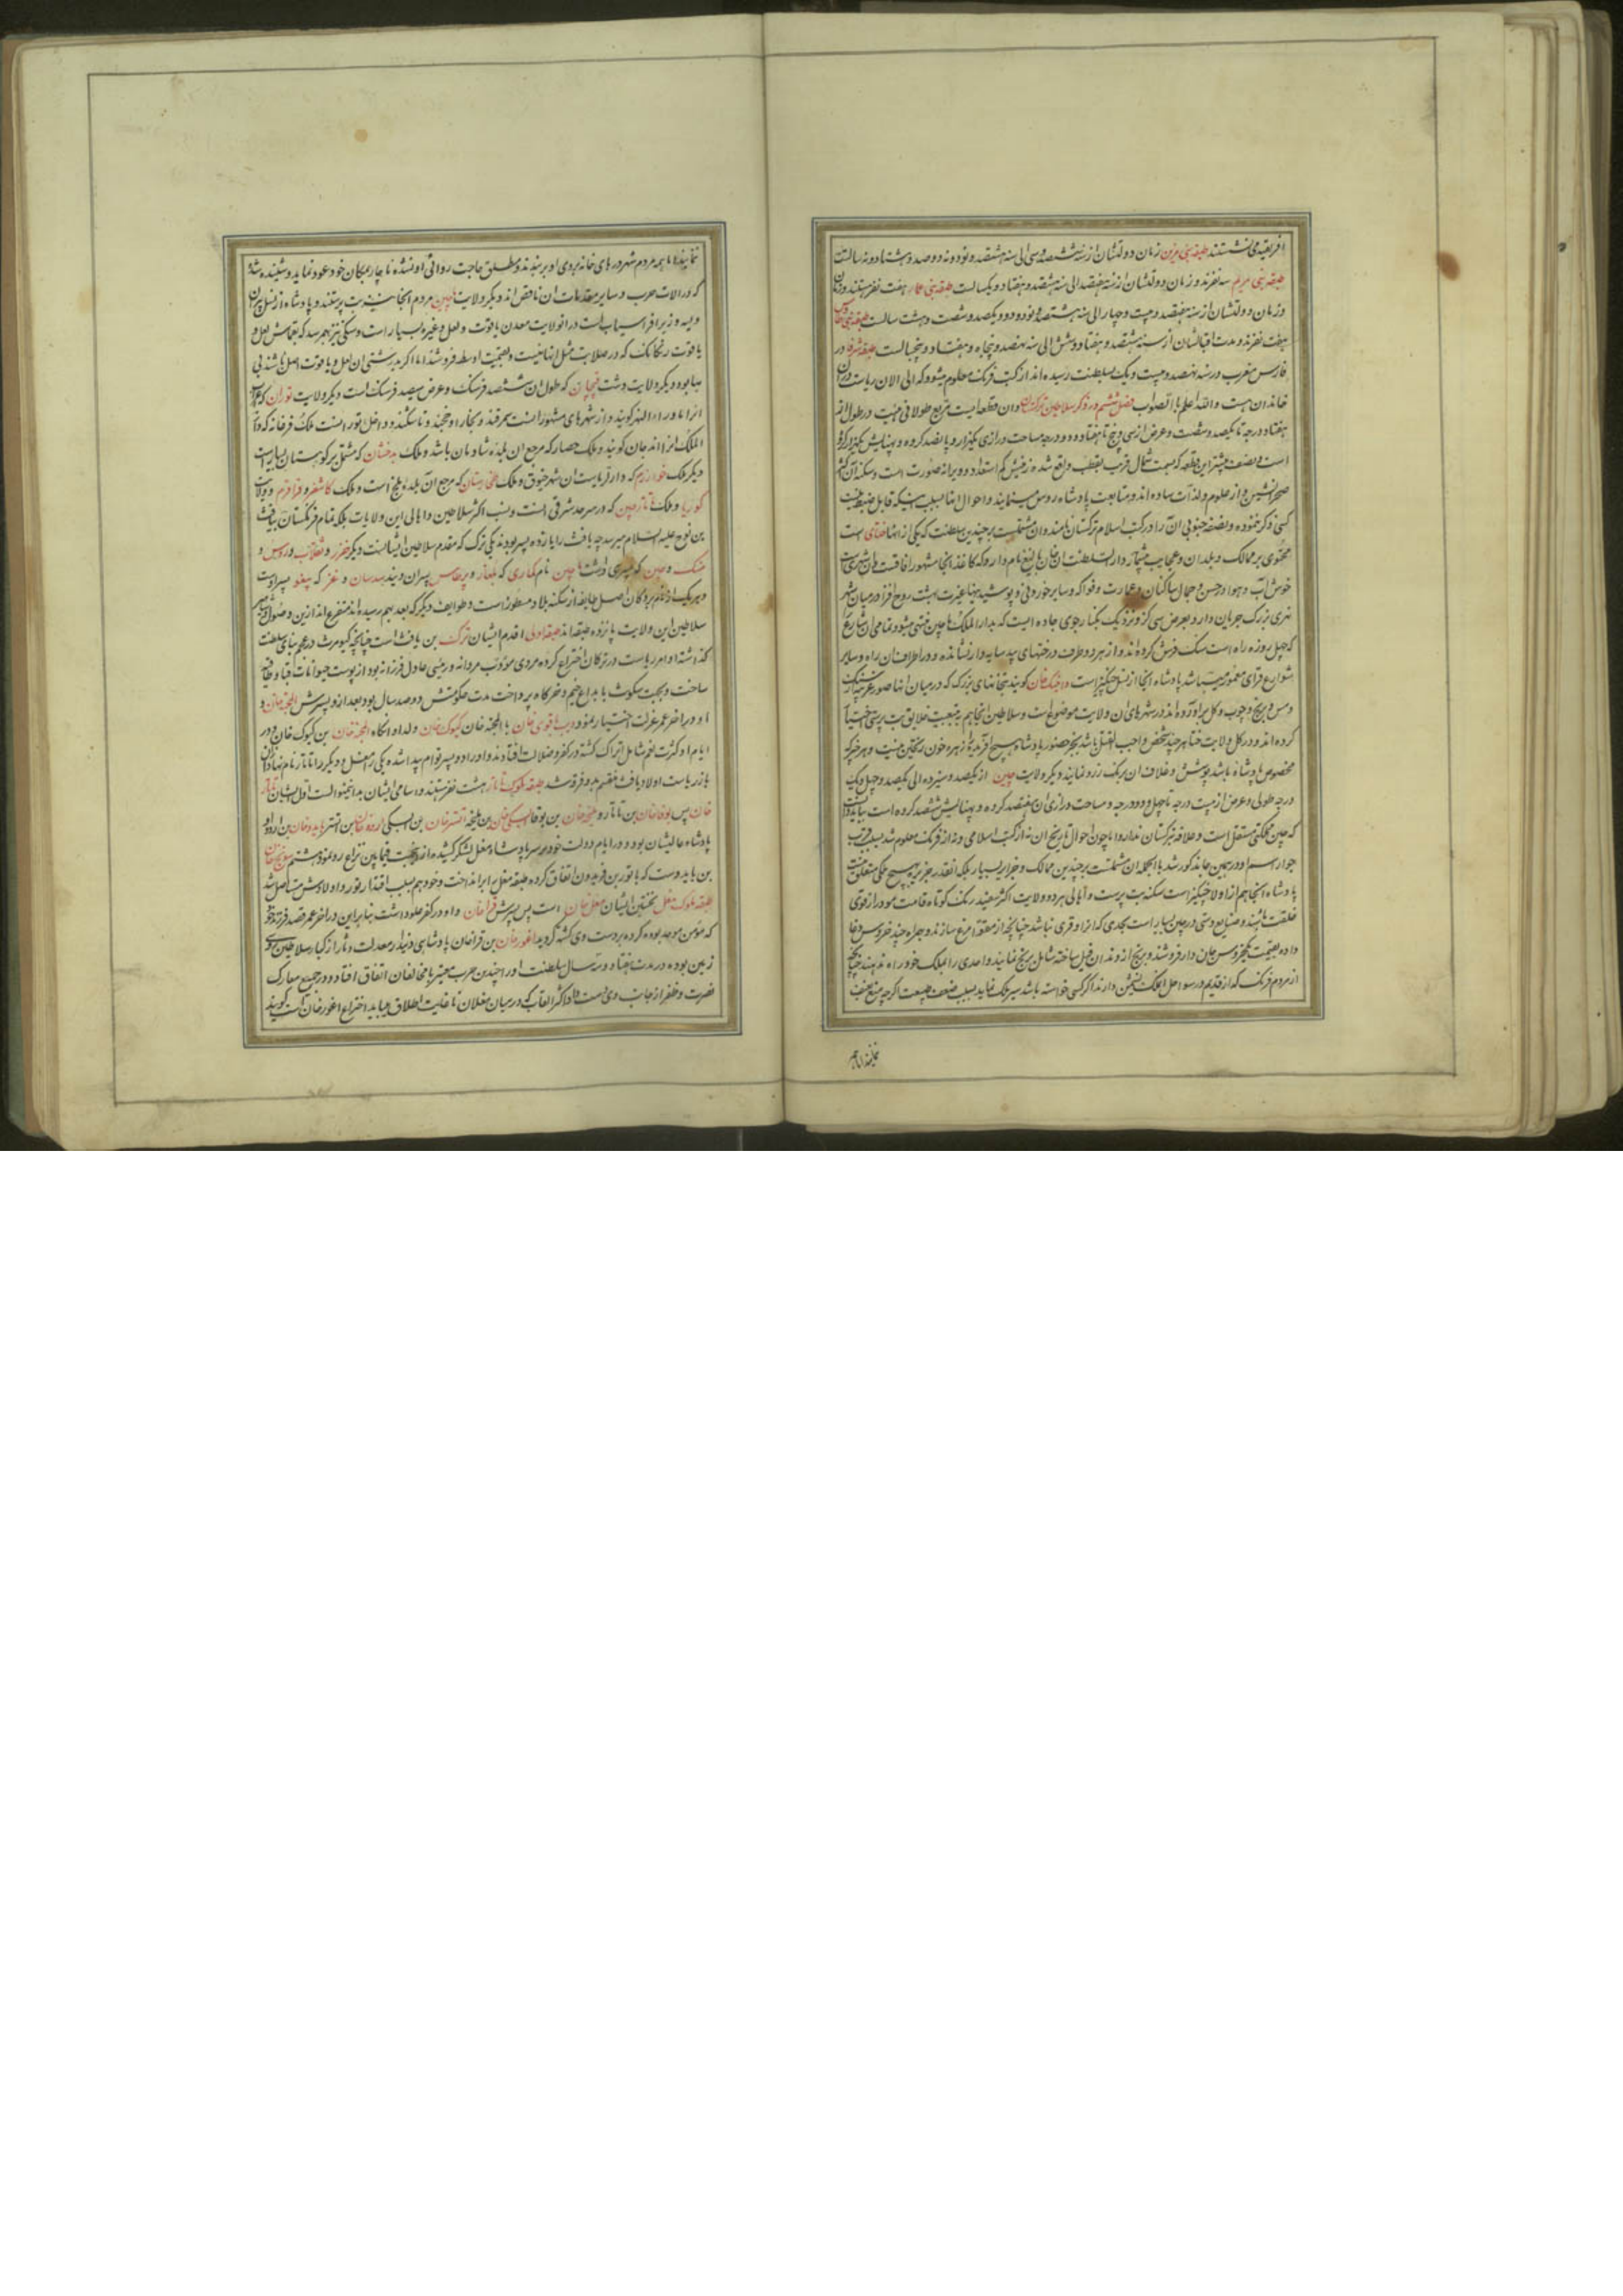 افریقیه می نشستند طبقه بنی مرین زمان دولتشان از سنه ششصد و سی الی سنه هشتصد و نود و نه دوصد و هشتاد و نه سالست
طبقه بنی مریم سه نفرند و زمان دولتشان از سنه هفتصد الی سنه هشتصد و هفتاد و یکسالست طبقه بنی عمار هفت نفر هستند و
و زمان دولتشان از سنه هفتصد و بیست و چهار الی سنه هشتصد و نود و دو و یکصد و شصت و هشت سالست طبقه بنی
هفت نفرند و مدت اقبالشان از سنه هشتصد و هفتاد و شش الی سنه نهصد و پنجاه و هفتاد و پنجسالست طبقه شرفا در
فارس مغرب در سنه نهصد و بیست و یک بسلطنت رسیده اند از کتب فرنگ معلوم میشود که الی الان ریاست در ان
خاندان هست و الله اعلم بالصواب فصل ششم در ذکر سلاطین ترکستان و ان قطعه ایست مربع طولانی هیئت در طول از
هفتاد درجه تا یکصد و شصت و عرض از سی و پنج تا هفتاد و دو درجه مساحت درازی یکهزار و پانصد کروه و پهنایش یکهزار کروه
است و نصف بیشتر این قطعه که بسمت شمال قریب بقطب واقع شده زمینش کم استعداد و ویرانه صورت است و سکنه آن کثر
صحرانشین و از علوم و لذات ساده اند و متابعت پادشاه روس مینمایند و احوال انها بسبب اینکه قابل ضبط نیست
کسی ذکر ننموده و نصفه جنوبی آن را در کتب اسلام ترکستان نامند و ان مشتمل است بر چندین سلطنت که یکی از انها ختای است
محتوی بر ممالک و بلدان و عجایب بیشمار دار السلطنت ان خان بالیغ نام دارد که کاغذ انجا مشهور افاقست و ان شهری است
خوش آب و هوا و در حسن و جمال ساکنان و عمارت و فواکه و سایر خوردنی و پوشیدنیها غیرت بهشت روح افزا در میان شهر
نهری بزرک جریان دارد بعرض سی گز و نزدیک بکنار جوی جاده ایست که بدار الملک ماچین منتهی میشود و تمامی ان شارع
که چهل روزه راه است سنک فرش کرده اند و از هر دو طرف درختهای بید سایه دار نشانده و در اطراف ان راه و سایر
شوارع قرای معمور میباشد پادشاه انجا از نسل چنگیز است و چنک خان کویند بتخانهای بزرک که در میان انها صور غریبه از سنک
و مس و برنج و چوب و کل براورده اند در شهرهای ان ولایت موضوع است و سلاطین انجا هم به تبعیت خلایق بت پرستی اختیار
کرده اند و در کل ولایت ختا هر چند شخص واجب القتل باشد بجز حضور پادشاه هیچ افریده را زهره خون ریختن نیست و هر چیز که
مخصوص پادشاه باشد پوشش و غلاف ان برنک زرد نمایند و دیکر ولایت چین از یکصد و سیزده الی یکصد و چهل و یک
درجه طولی و عرض از بیست درجه تا چهل و دو درجه و مساحت درازی ان هفتصد کروه و پهنایش ششصد کروه است بباید دانست
که چین مملکتی مستقل است و علاقه بترکستان ندارد اما چون احوال تاریخ ان نه از کتب اسلامی و نه از فرنک معلوم شد بسبب قرب
جوار اسم او در همین جا مذکور شد بالجمله ان مشتملست بر چندین ممالک و جزایر بسیار بلکه انقدر جزیره بهیچ ملکی متعلق نیست
پادشاه انجا هم از اولاد چنگیز است سکنه بت پرست و اهالی هر دو ولایت اکثر سفید رنک کوتاه قامت مو دراز قوی
خلقت باشند و صنایع دستی در چین بسیار است بحدی که انرا در قری نباشد چنانچه از مقوا مرغ سازند و همراه چند خروس دغا
داده بقیمت یکخروس جان دار فروشند و برنج از دندان فیل ساخته شامل برنج نمایند و احدی را بملک خود راه ندهند چنانچه
از مردم فرنک که از قدیم در سواحل انملک نشیمن دارند اگر کسی خواسته باشد سیر ملک نماید بسبب ضعف جمعیت اگرچه منع عنیف
نمایند اما هم
نمایند اما همه مردم شهر درهای خانه بروی او بربندند و مطلق حاجت روائی او نشده ناچار بمکان خود عود نماید و شنیده شد
که در الات حرب و سایر مقدمات ان ناقص اند و دیکر ولایت ماچین مردم انجا نیز بت پرستند و پادشاه از نسل پیران
ویسه وزیر افراسیاب است در انولایت معدن یاقوت و لعل و غیره بسیار است و سنگی نیز بهم رسد که بقماش لعل و
یاقوت رنکا نک که در صلابت مثل انها نیست و بقیمت اوسط فروشند اما اگر بدرستی ان لعل و یاقوت اصل باشند بی
بها بود و دیکر ولایت دشت قبچاق که طول ان ششصد فرسنک و عرض سیصد فرسنک است و دیکر ولایت توران که عرب
انرا ماوراء النهر کویند و از شهرهای مشهور انست سمرقند و بخارا و خجند و تاشکند و داخل تورانست ملک فرغانه که دار
الملک انرا اندجان کویند و ملک حصار که مرجع ان بلده شادمان باشد و ملک بدخشان که مشتمل بر کوهستان بسیار است
دیکر ملک خوارزم که دار الریاست ان شهر خیوق و ملک طخارستان که مرجع آن بلده بلخ است و ملک کاشغر و قراقرم و ولایت
کوریا و ملک تاتار چین که در سرحد شرقی انست و نسب اکثر سلاطین و اهالی این ولایات بلکه تمام فرنگستان بیافث
بن نوح علیه السلام میرسد چه یافث را یازده پسر بودند یکی ترک که مقدم سلاطین ایشانست دیکر خزر و سقلاب و روس و
منسک و چین که پسری داشت ماچین نام کماری که بلغار و برطاس پسران ویند سدسان و غز که بیغو پسر اوست
و هر یک از نام بردکان اصل طایفه از سکنه بلاد مسطوره است و طوایف دیکر که بعد بهم رسیده اند متفرع اند ازین و ضول
سلاطین این ولایت پانزده طبقه اند طبقه اولی اقدم ایشان ترک بن یافث است چنانچه کیومرث در عجم بنای سلطنت
گذاشته او امر ریاست در ترکان اختراع کرده مردی مؤدب مردانه و رئیسی عادل فرزانه بود از پوست حیوانات قبا و طاقیه
ساخت و بجهت سکونت بابداع خیم و خرکاه پرداخت مدت حکومتش دوصد سال بود بعد از و پسرش ایلجه خان و
او در اخر عمر عزلت اختیار نمود دیب باقوی خان با انجه خان کیوک خان ولد او انکاه انجه خان بن کیوک خان و در
ایام او کثرت نعم شامل اتراک کشته در کفر و ضلالت افتادند و او را دو پسر توام پیدا شده یکی را مغول و دیکر را تاتار نام نهاد و ازان
باز ریاست اولاد یافث منقسم بدو فرقه شد طبقه ملوک تاتار هشت نفر هستند و اسامی ایشان بدانمنوالست اول ایشان تاتار
خان پس بوقاخان بن تاتار و یلنجه خان بن بوقا ایسلی خان بن یلنجه اتسز خان بن ایسلی اردو خان بن اتسز بایدو خان بن اردو
پادشاه عالیشان بود و در ایام دولت خود بر سر پادشاه مغل لشکر کشید و ازانجهت فیمابین نزاع رو نمود هشتم سونج خان
بن بایدوست که با تور بن فریدون اتفاق کرده طبقه مغل را برانداخت و خود هم بسبب اقتدار تور و اولادش مستاصل شد
طبقه ملوک مغل نخستین ایشان مغل خان است پس پسرش قراخان و او در کفر غلو داشت بنابراین در اخر عمر قصد فرزند خود
که مؤمن موحد بوده کرده بر دست وی کشته گردید اغورخان بن قراخان پادشاهی دیندار معدلت دثار از کبار سلاطین روی
زمین بوده در مدت هفتاد و سه سال سلطنت او را چندین حرب معتبر با مخالفان اتفاق افتاد و در جمیع معارک
نصرت و ظفر از جانب وی بدست داد اکثر القاب که در میان مغلان تا غایت اطلاق مییابد اختراع اغورخان است گویند